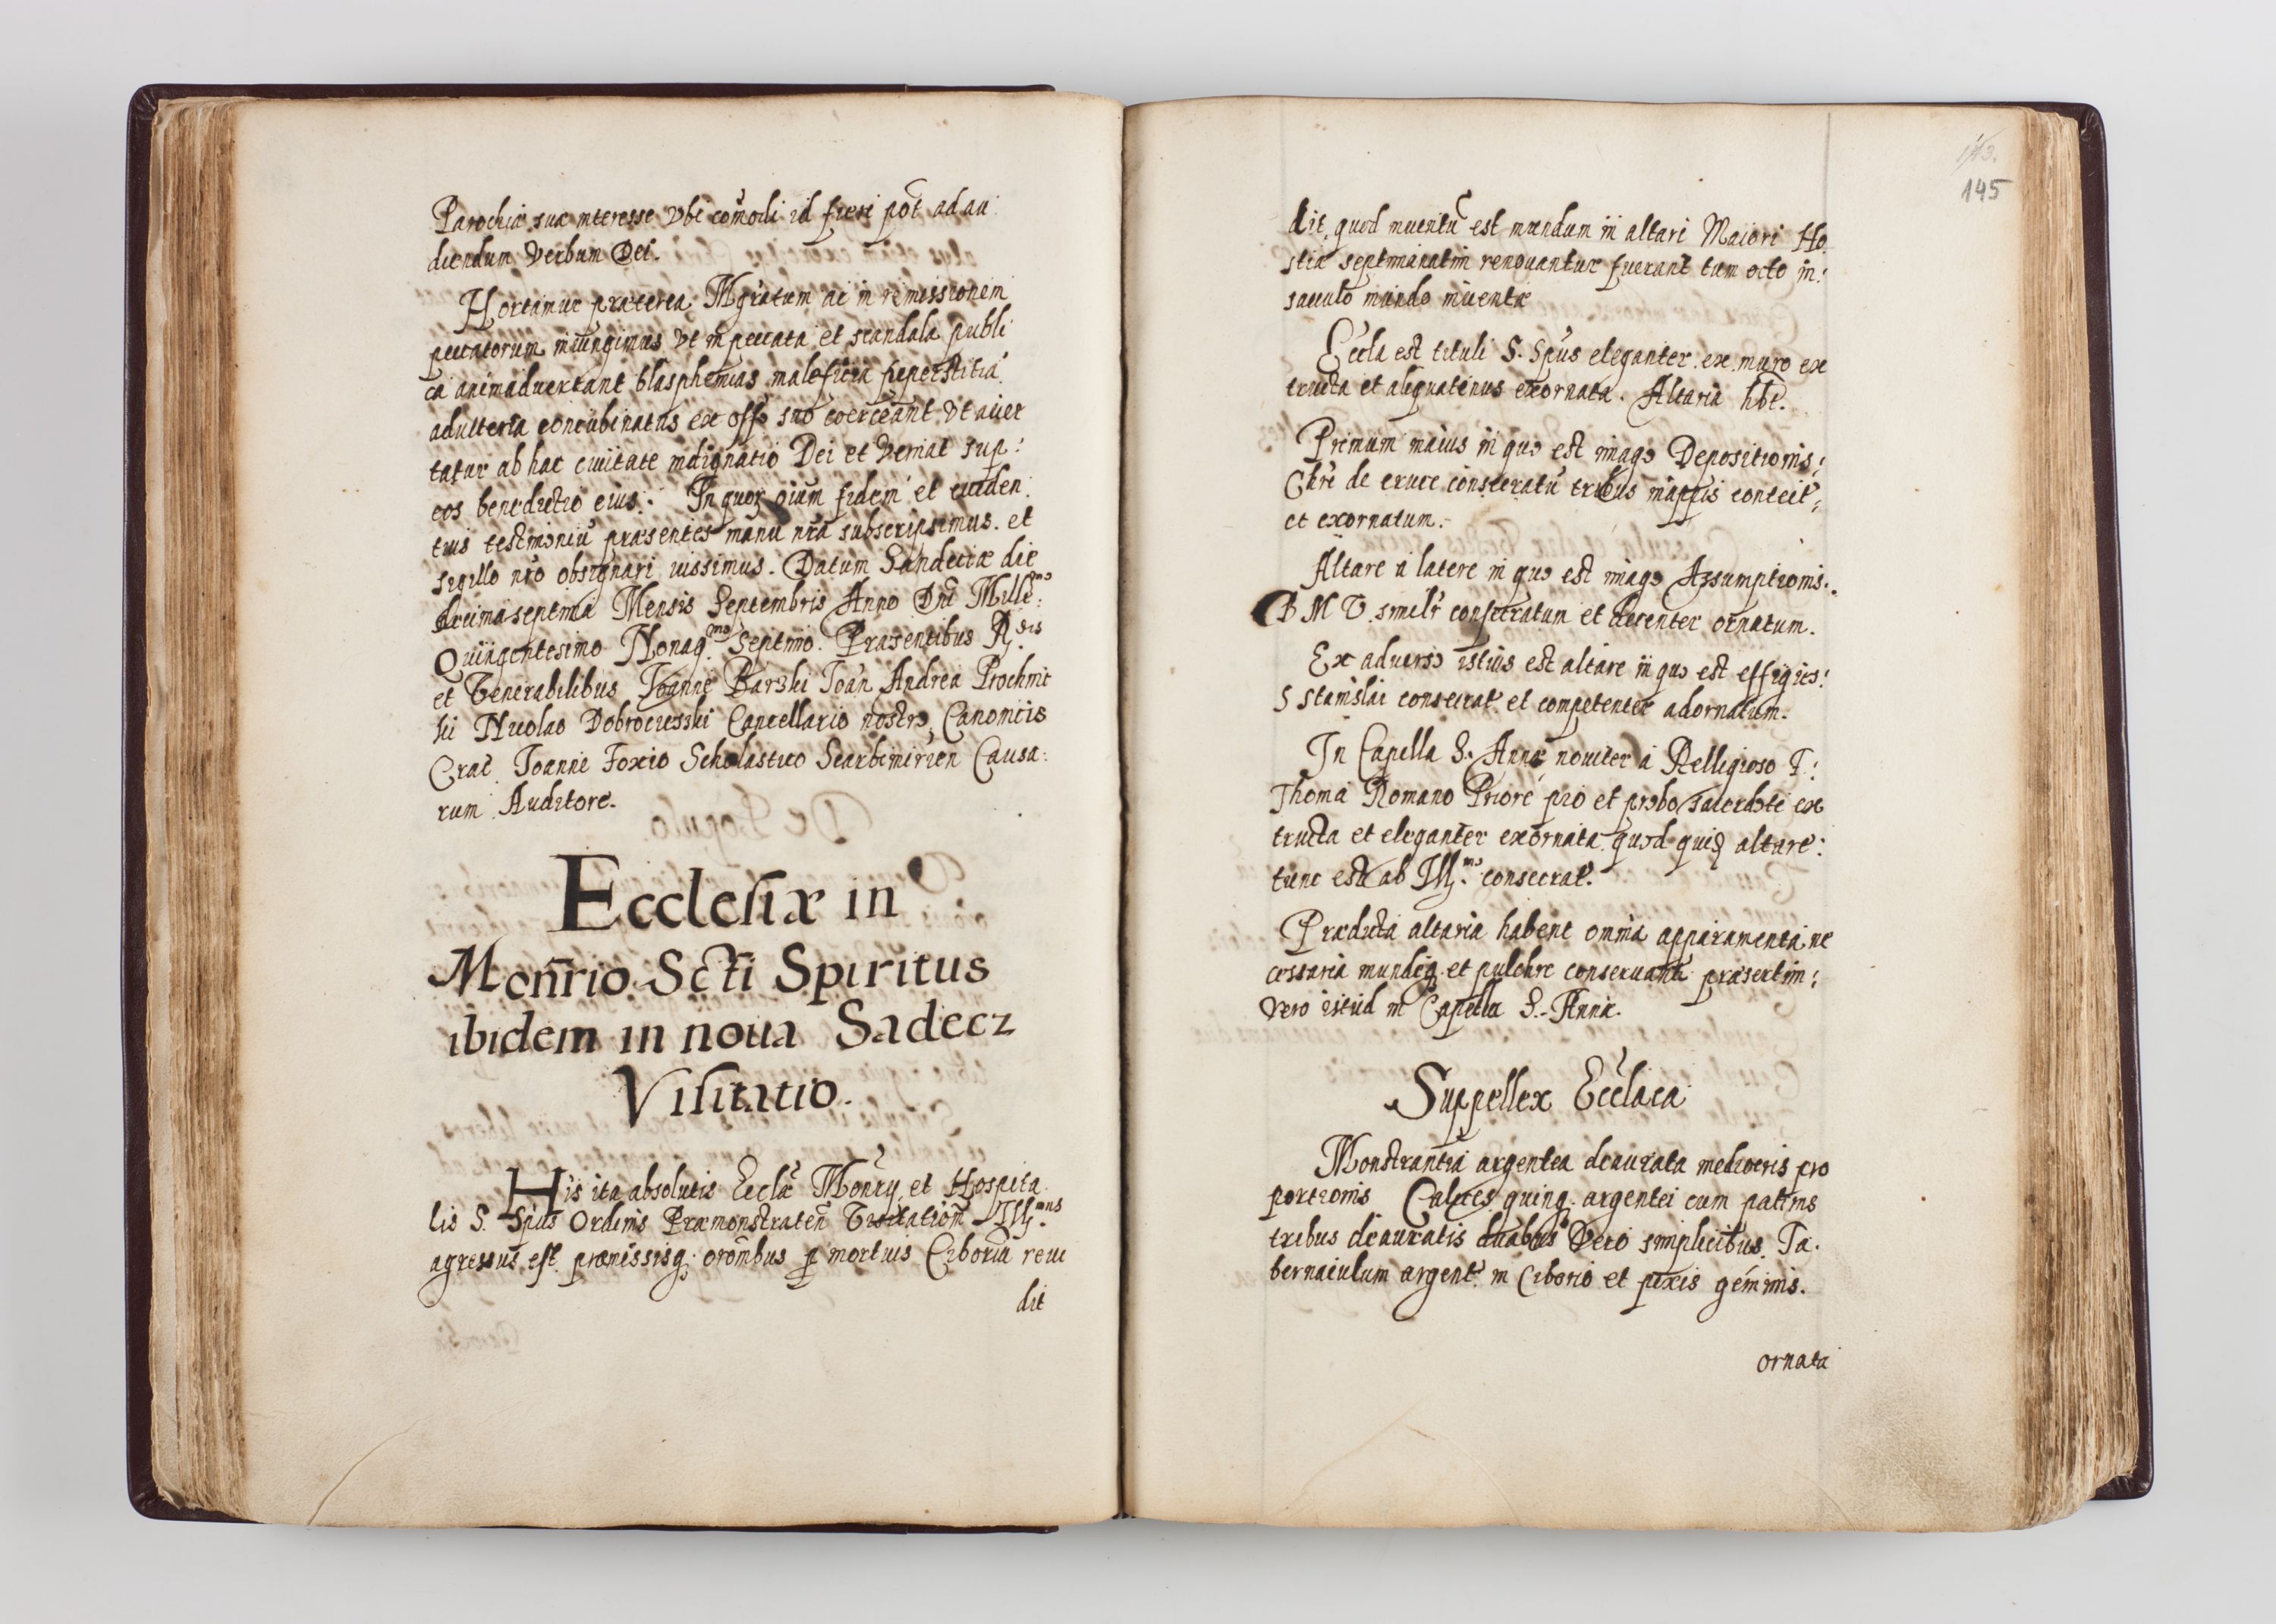 Parochiæ suæ interesse vbi com̃odi id fieri põt ad au
diendum Verbum Dei.
Hortamur præterea Mgr̃atum ac in remissionem
peccatorum iniungimus vt in peccata et scandala publi
ca animaduertant blasphemias maleficia superstitia
adulteria concubinatus ex offo suo coerceant vt auer
tatur ab hac ciuitate indignatio Dei et veniat sup:
eos benedictio eius. In quor oium fidem et euiden
tius testimoniũ præsentes manu nr̃a subscripsimus. et
sigillo nr̃o obsignari iussimus. Datum Sandeciæ die
decima septima Mensis Septembris Anno Dñi Mille:mo
Quingentesimo Nonag.mo Septimo. Præsentibus R.dis
et Venerabilibus Joanne Barski Joañ Andrea Prochnic
ki Nicolao Dobrocieski Cancellario nostro, Canonicis
Crac̃ Joanne Foxio Scholastico Scarbimirien̄ Causa:
rum Auditore.
Ecclesiæ in
Moñrio Scti Spiritus
ibidem in noua Sadecz
Visitatio.
His ita absolutis Eccl̃æ Moñry et Hospita
lis S. Sp̃us Ordinis Præmonstrateñ Visitatioñ Ill.mus
agressus est præmissisq; orõnibus p mortuis Ciboriũ reui
dit
143.
145
dit, quod inuentũ est mundum in altari Maiori Ho
stiæ septimanatim renouantur fuerant tum octo in:
sacculo mundo inuentæ
Eccl̃a est tituli S. Sp̃us eleganter ex muro ex
tructa et aliquatenus exornata. Altaria hb̃t.
Primum maius in quo est imago Depositionis:
Chr̃i de cruce consecratũ tribus mappis contect;
et exornatum.
Altare a latere in quo est imago Assumptionis.
B M V. simil̃r consecratum et decenter ornatum.
Ex aduerso istius est altare in quo est effigies:
S Stanislai consecrat et competenter adornatum.
In Capella S. Annæ nouiter a Relligioso F:
Thoma Romano Priore pio et probo sacerdote ex
tructa et eleganter exornata quod quid altare:
tunc est ab Ill.mo consecrat.
Prædicta altaria habent omnia apparamenta ne
cessaria mundeq; et pulchre conseruant præsertim:
Vero istud in Capella S. Annæ.
Suppellex Eccl̃aca
Monstrantia argentea deaurata mediocris pro
portionis Calices quinq; argentei cum patinis
tribus deauratis duabus Vero simplicibus. Ta.
bernaculum argent̃ in Ciborio et pixis gemmis.
ornata